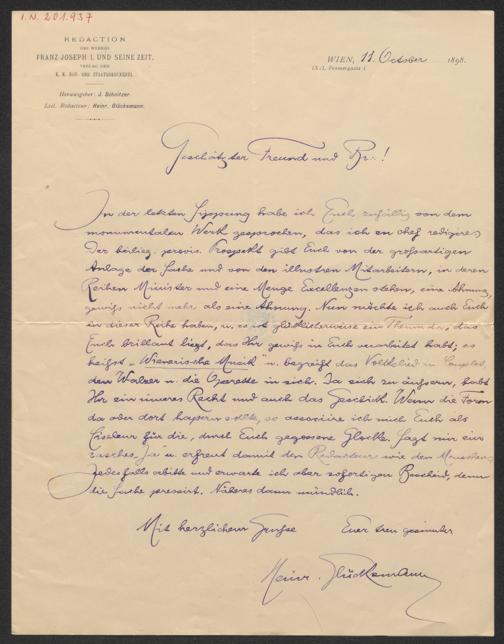 I.N. 201.937
REDACTION
DES WERKES
FRANZ JOSEPH I. UND SEINE ZEIT.
VERLAG DER
K. K. HOF- UND STAATSDRUCKEREI.
Herausgeber: J. Schnitzer
Leit. Redacteur: Heinr. Glücksmann.
WIEN, 11. October 1898.
IX/1,
Geschätzter Freund und Br∴!
In der letzten Sitzung habe ich Euch zufällig von dem
monumentalen Werk gesprochen, das ich en chef redigire.
Der beilieg. provis. Prospekt gibt Euch von der großartigen
Anlage der Sache und von den illustren Mitarbeitern, in deren
Reihen Minister und eine Menge Excellenzen stehen, eine Ahnung,
gewiß nicht mehr als eine Ahnung. Nun möchte ich auch Euch
in dieser Reihe haben, u. es ist glücklicherweise ein Thema da, das
Euch brillant liegt, das Ihr gewiß in Euch verarbeitet habt; es
heißt „Wienerische Musik" u. begreift das Volkslied u. Couplet,
den Walzer u. die Operette in sich. Da sich zu äußern, habt
Ihr ein inneres Recht und auch das Geschick. Wenn die Form
da oder dort hapern sollte, so associire ich mich Euch als
Ciseleur für die, durch Euch gegossene Glocke. Sagt nur ein
rasches Ja u. erfreut damit den Redacteur wie den Menschen.
Jedesfalls erbitte und erwarte ich aber sofortigen Bescheid, denn
die Sache pressirt. Näheres dann mündlich.
Mit herzlichem Gruße
Euer treu gesinnter
Heinr. Glücksmann